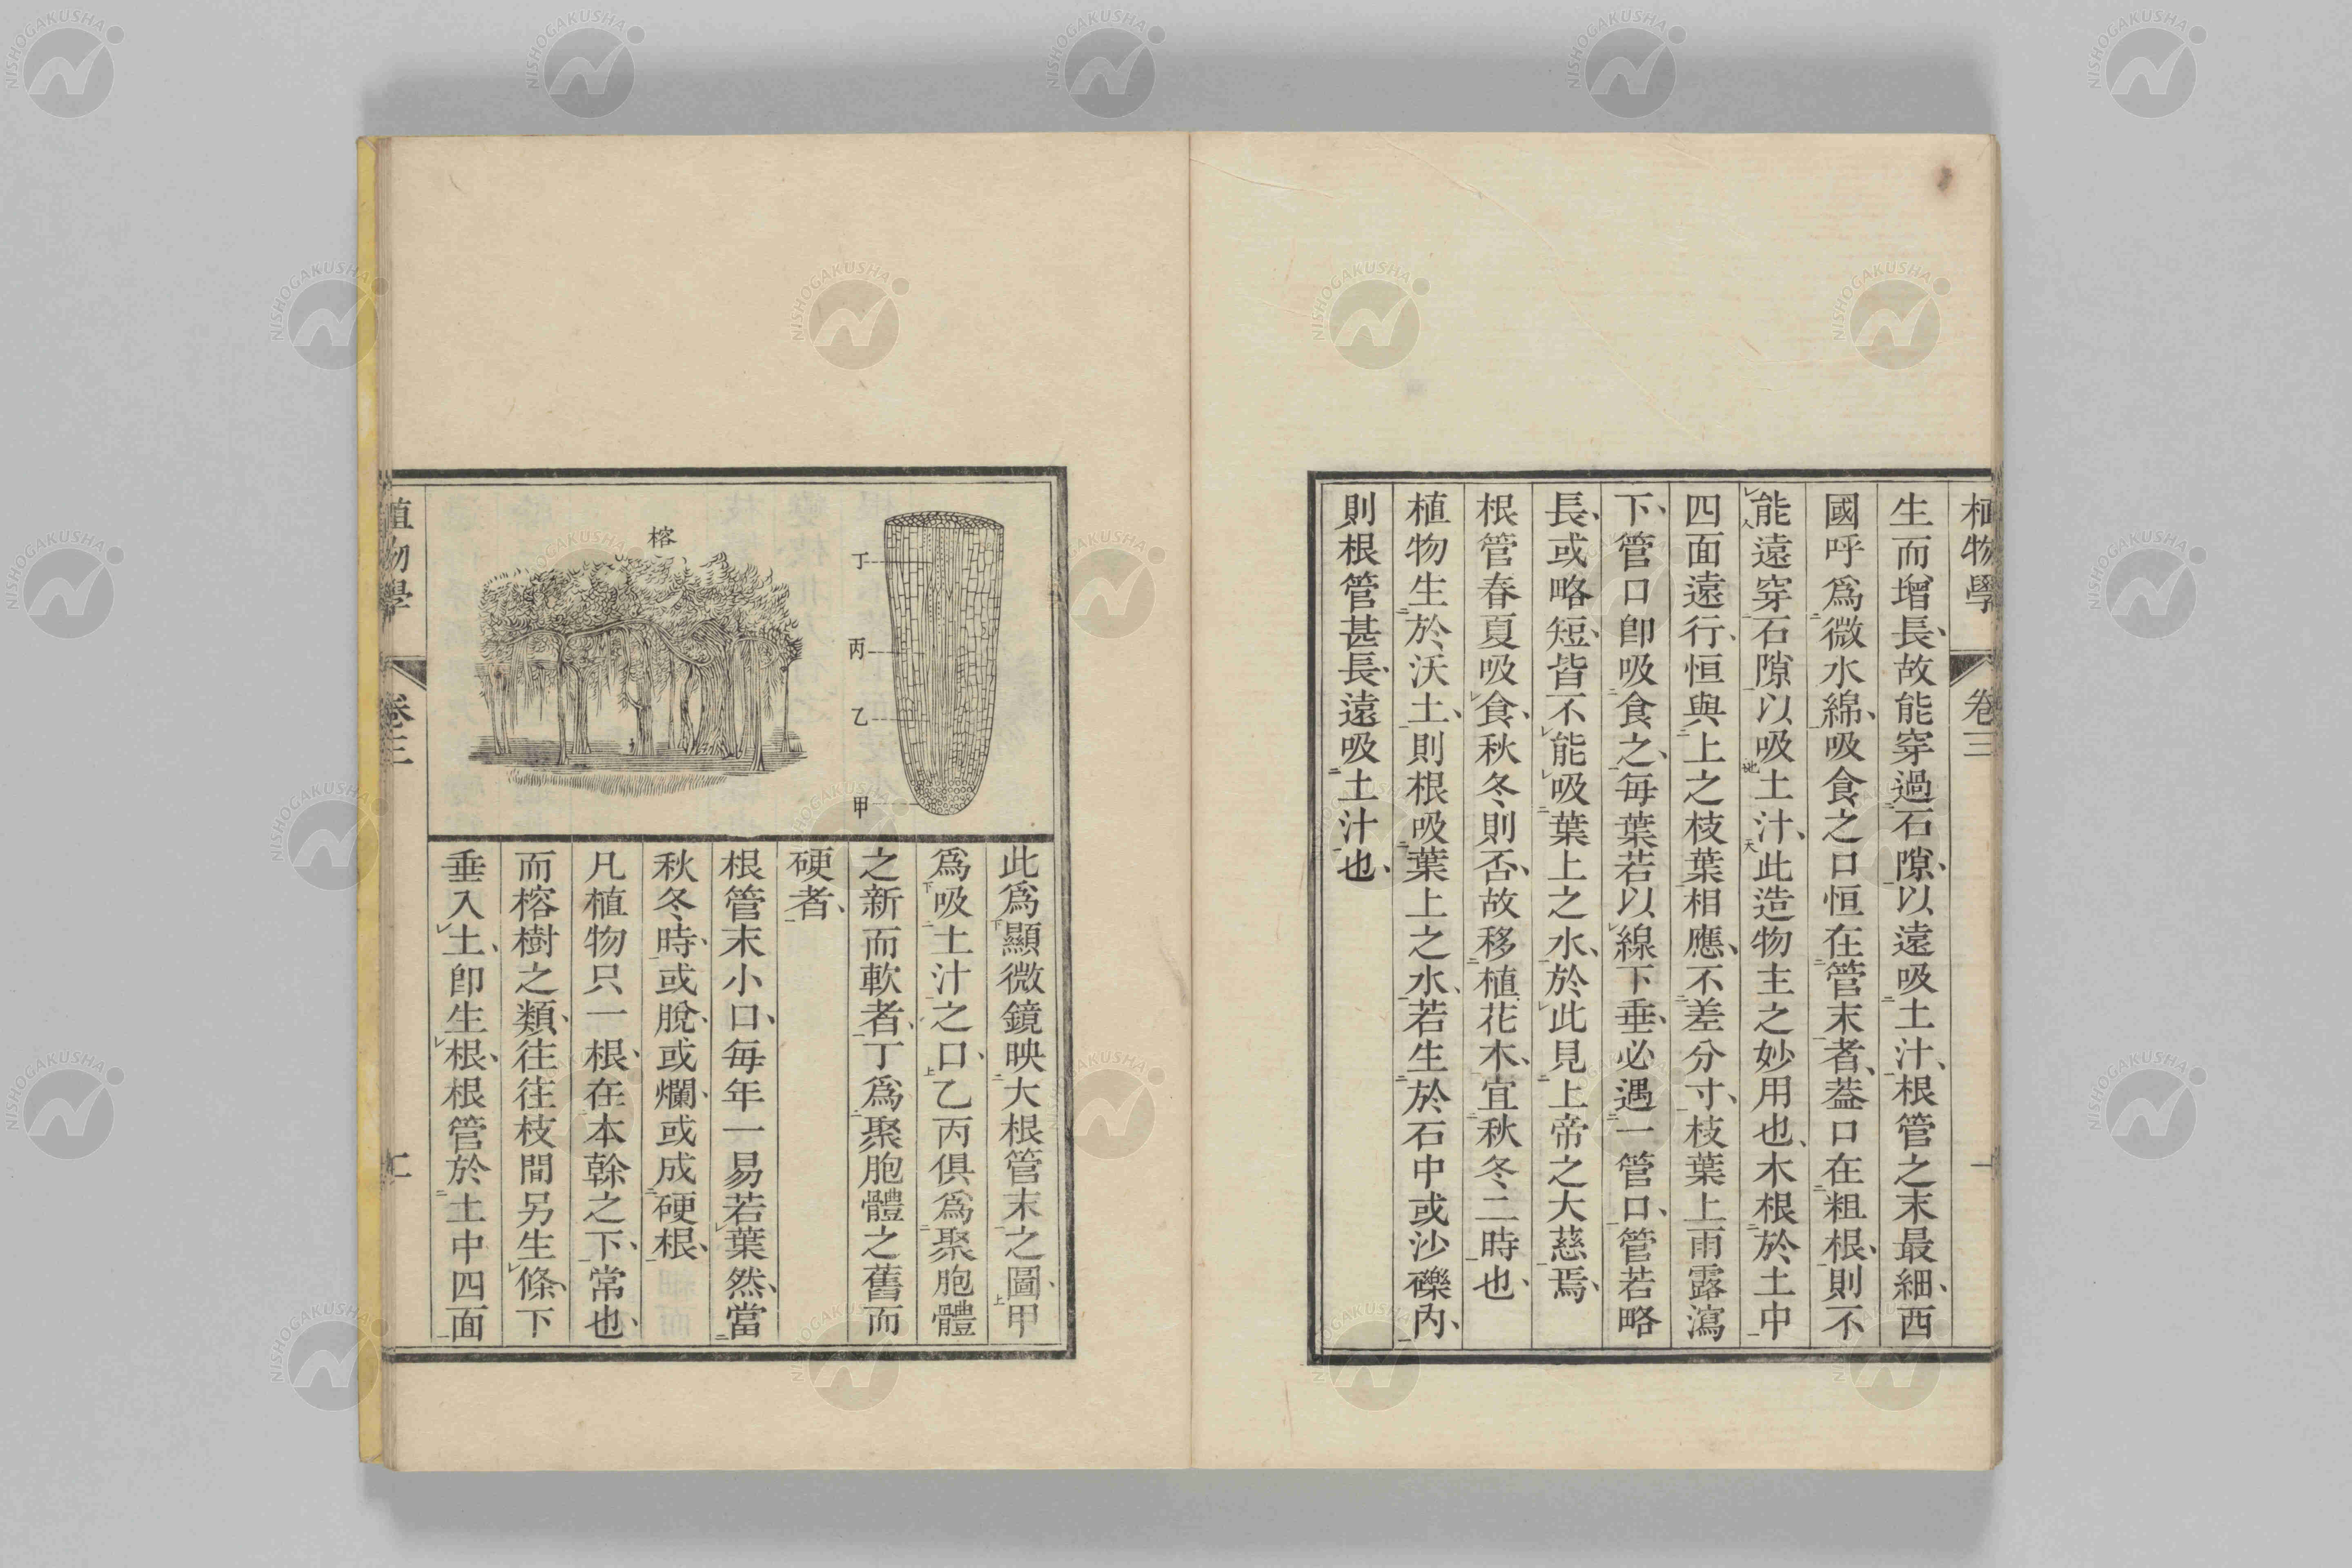 植物學 卷三 一
生而增長、故能穿過石隙、以遠吸土汁、根管之末最細、西
國呼爲微水綿、吸食之口恒在管末者、葢口在粗根、則不
能遠穿石隙以吸土汁、此造物主之妙用也、木根於土中
四面遠行、恒與上之枝葉相應、不差分寸、枝葉上雨露瀉
下、管口卽吸食之、每葉若以線下垂、必遇一管口、管若略
長、或略短、皆不能吸葉上之水、於此見上帝之大慈焉、
根管春夏吸食、秋冬則否、故移植花木、宜秋冬二時也、
植物生於沃土、則根吸葉上之水、若生於石中或沙礫內、
則根管甚長、遠吸土汁也、
丁
丙
乙
甲
榕
此爲顯微鏡映大根管末之圖、甲
爲吸土汁之口、乙丙俱爲聚胞體
之新而軟者、丁爲聚胞體之舊而
硬者、
根管末小口、每年一易若葉然、當
秋冬時、或脫、或爛、或成硬根、
凡植物只一根、在本榦之下、常也、
而榕樹之類、往往枝間另生條、下
垂入土、卽生根、根管於土中四面
植物學 卷三 二